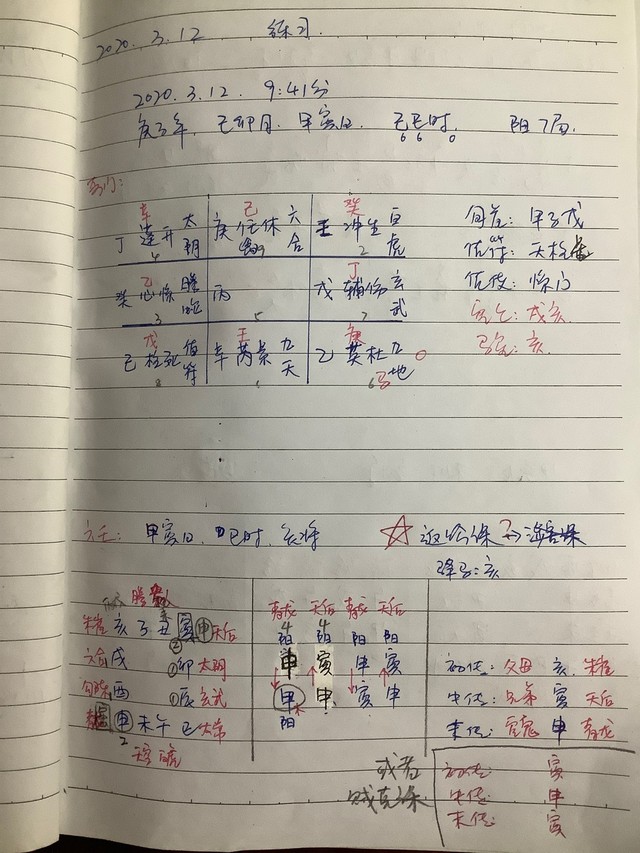 2020.3.12 练习.
2020.3.12. 9:41分
庚子年. 己卯月. 甲寅日. 己巳时. 阳7局.
6 6 0
奇门:
辛 己 癸
丁 蓬 开 太阴 庚 任 休 六合 壬 冲 生 白虎
4 9 2
旬首: 甲子戊
值符: 天柱
值使: 惊门
空亡: 戌亥
马星: 亥
乙 丁
癸 心 惊 螣蛇 丙 戊 辅 伤 玄武
3 5 7
戊 壬 庚
己 柱 死 值符 辛 芮 景 九天 乙 英 杜 九地
8 1 6马
六壬: 甲寅日. 巳时. 亥将 ☆返吟课?
驿马: 亥
朱雀 亥 子 丑 寅 甲 天后
六合 戌 ①卯 太阴
勾陈 酉 ①辰 玄武
申 未 午 巳 太常
2
白虎
青龙 天后 青龙 天后
4 4
阳 阳 阳 阳
申 寅 申 寅
甲 申 寅 申
阳
初传: 父母 亥 朱雀
中传: 兄弟 寅 天后
末传: 官鬼 申 青龙
或者
贼克课
初传: 寅
中传: 申
末传: 寅